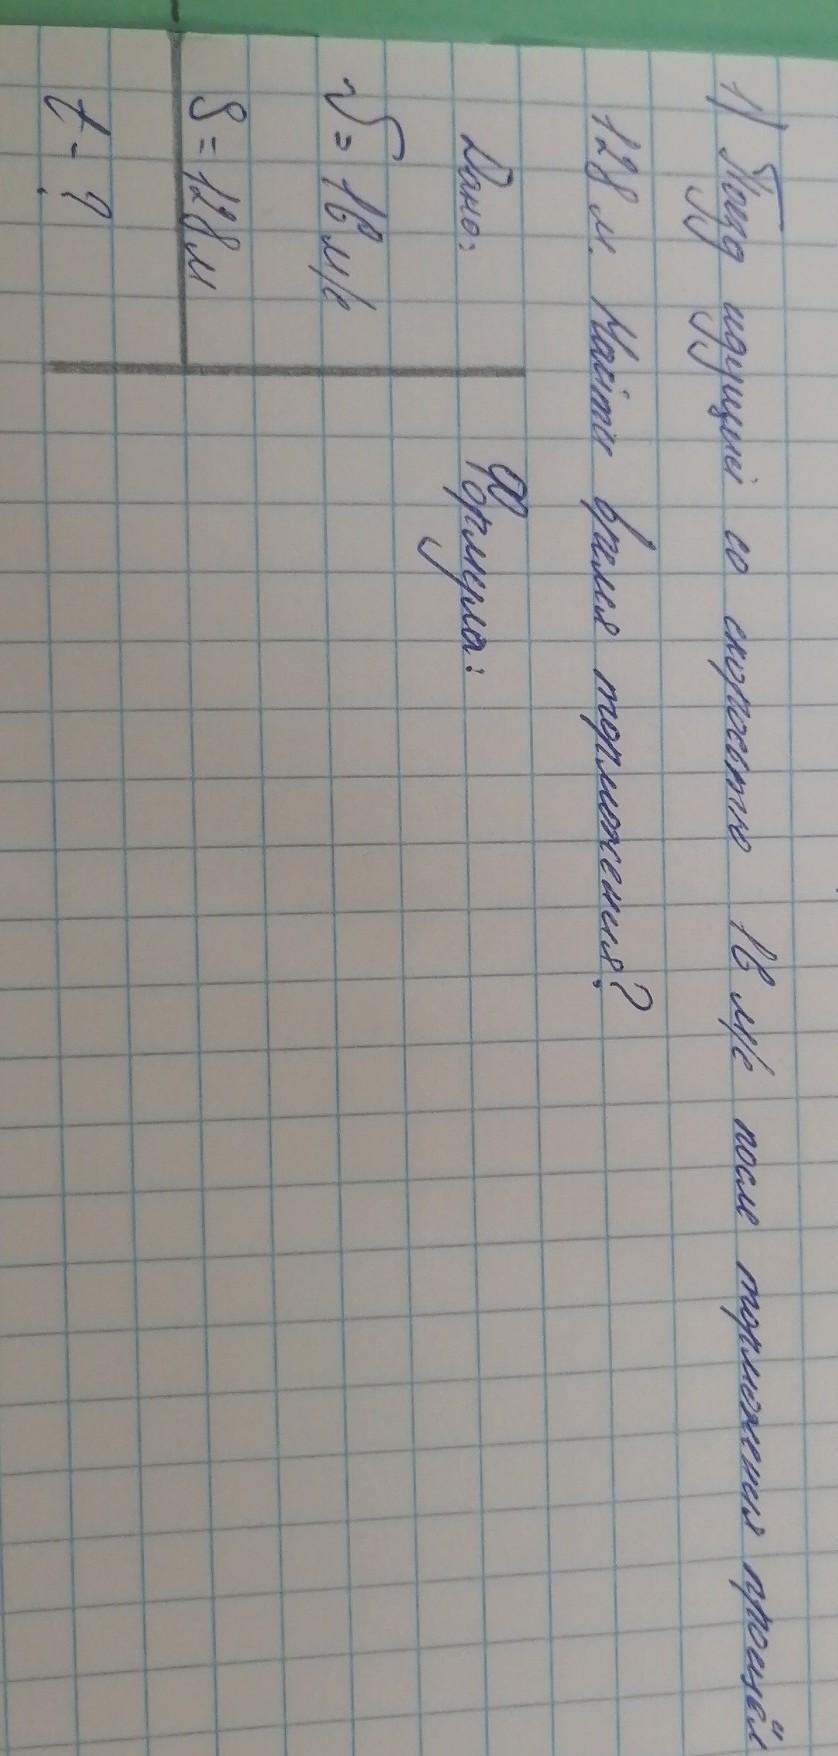 1) Поезд идущий со скоростью 16 м/с после торможения прошёл
128 м. Найти время торможения?
Дано:
Формула:
v = 16 м/с
S = 128 м
t - ?